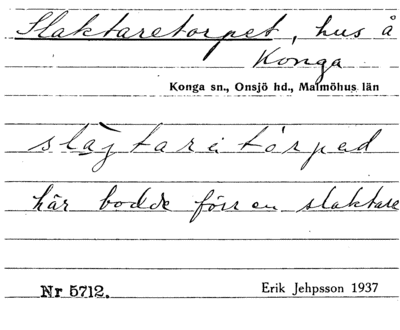 Slaktaretorpet, hus å
Konga
Konga sn., Onsjö hd., Malmöhus län
slagtaretorped
här bodde förr en slaktare
Nr 5712.
Erik Jehpsson 1937